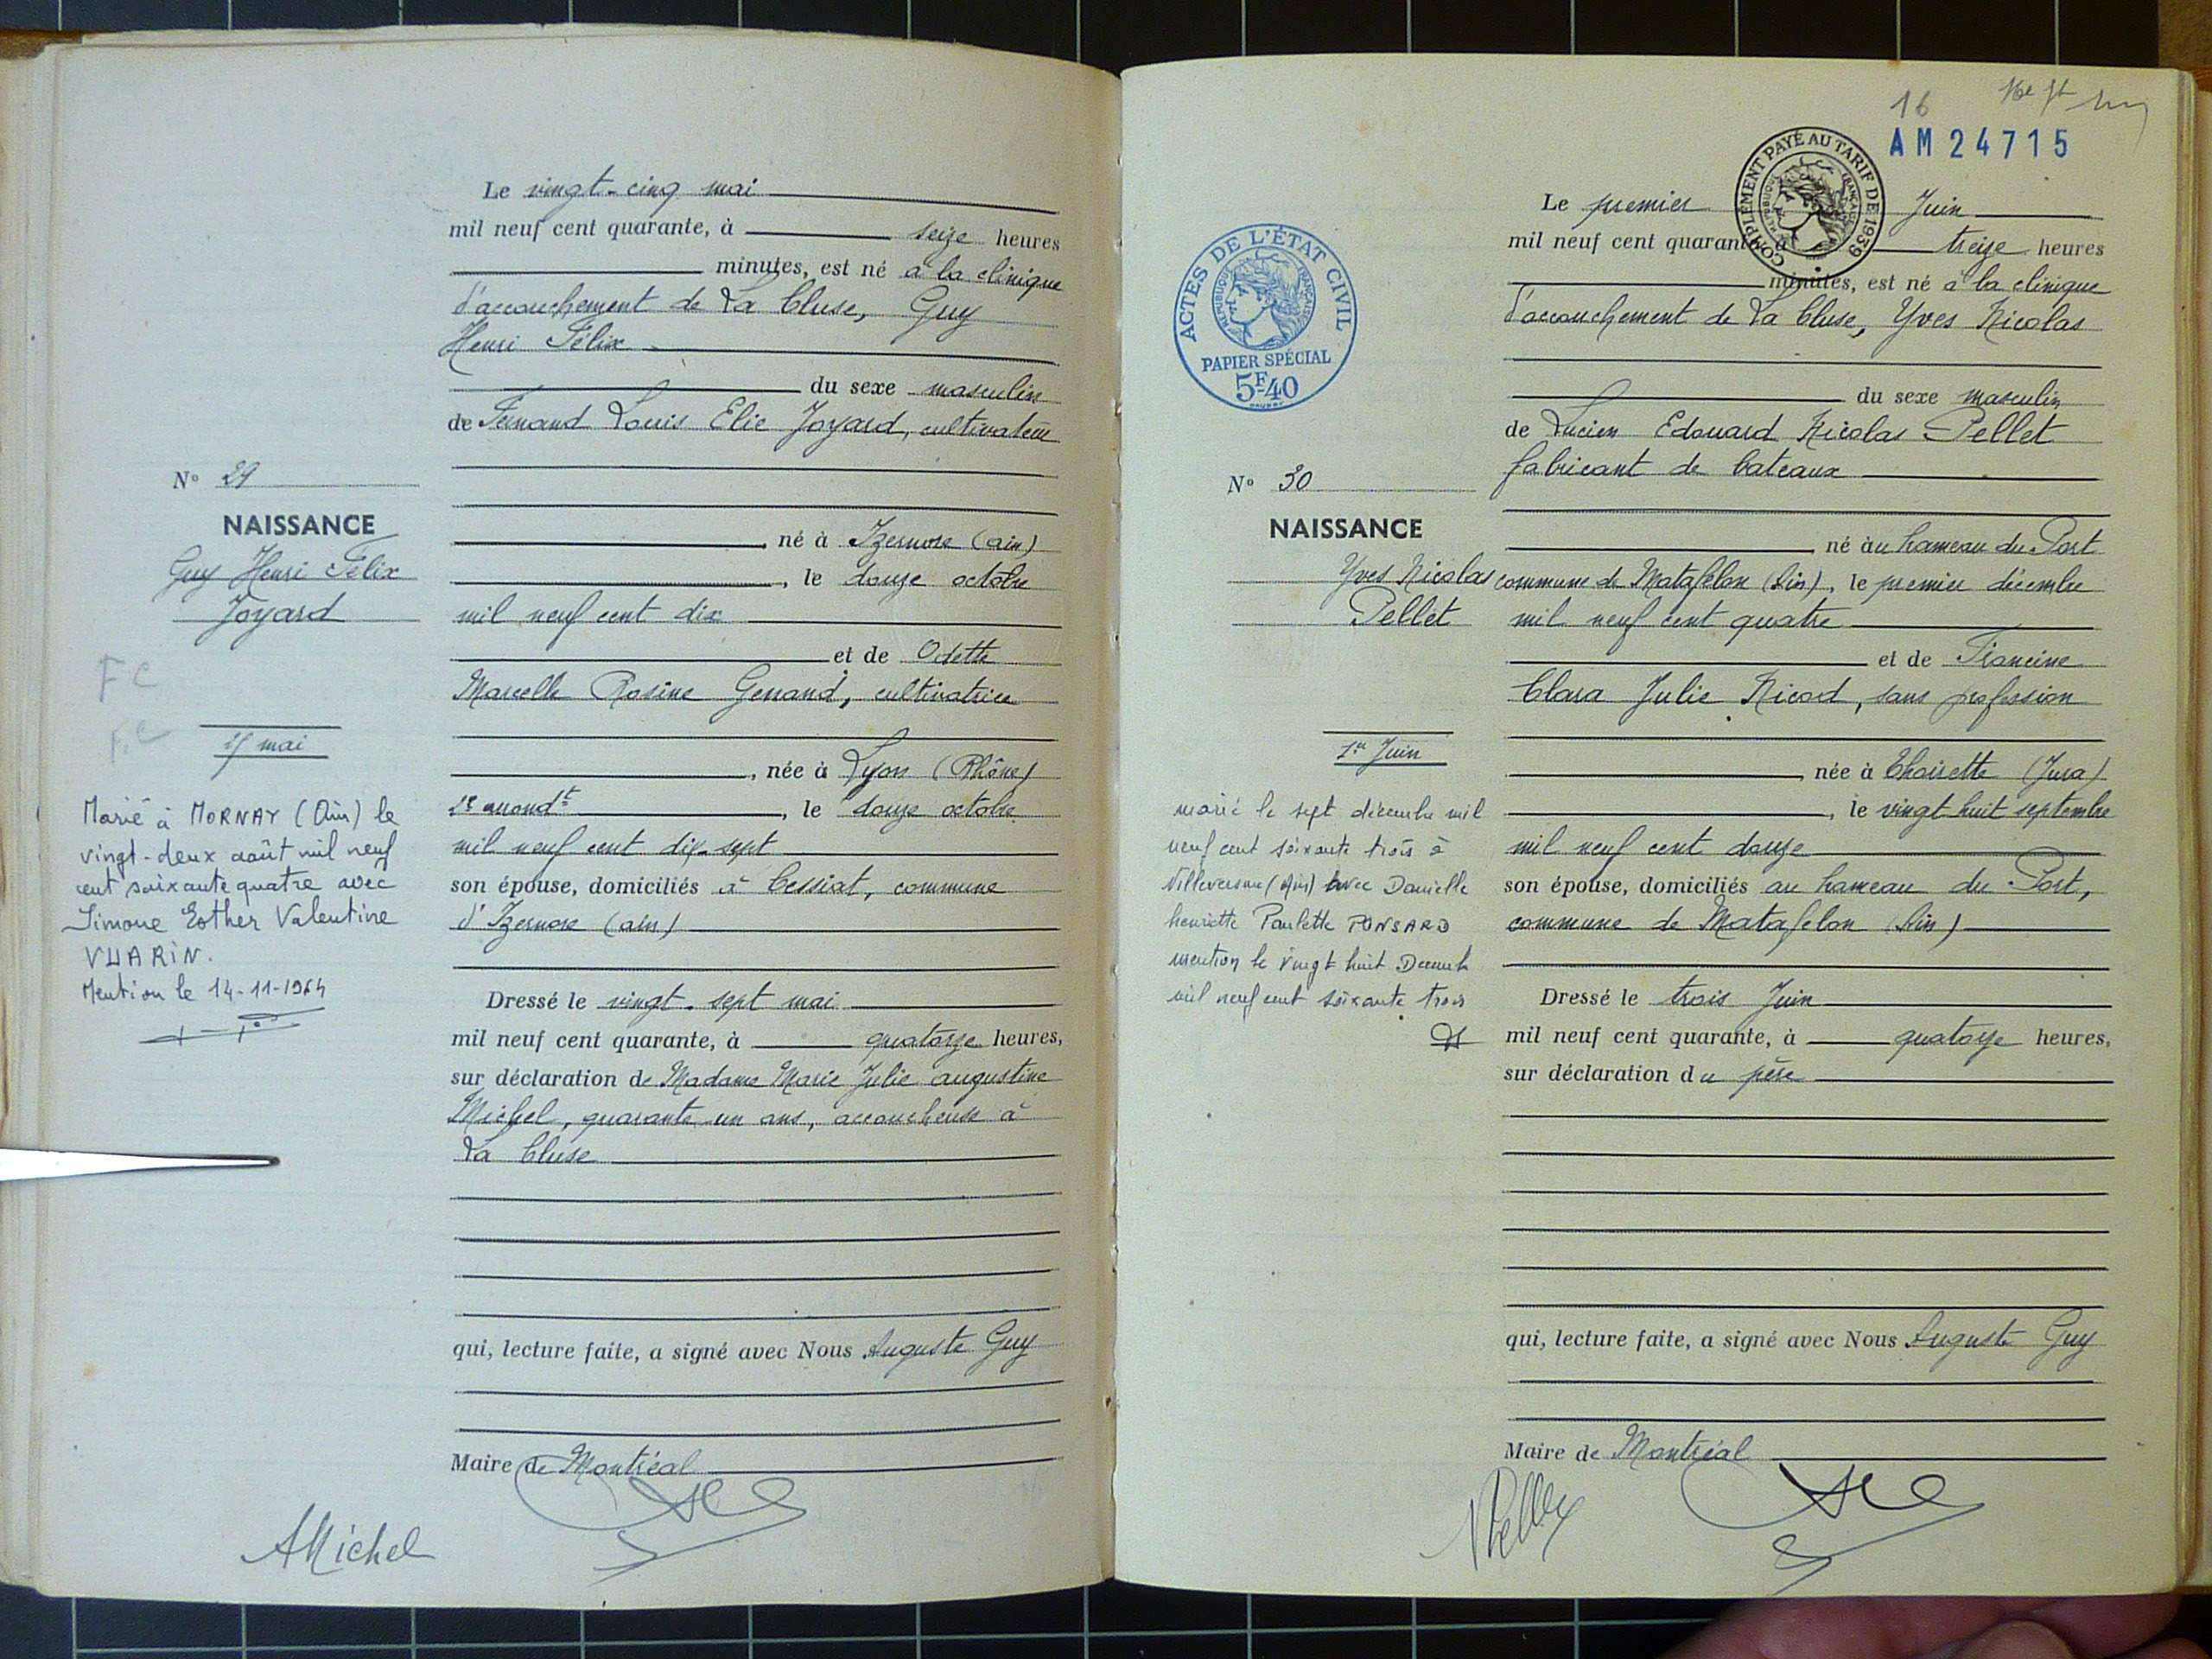 Le vingt-cinq mai
mil neuf cent quarante, à seize heures
minutes, est né à la clinique
d'accouchement de La Cluse, Guy
Henri Félix
du sexe masculin
de Fernand Louis Elie Joyard, cultivateur
né à Izernore (ain)
, le douze octobre
mil neuf cent dix
et de Odette
Marcelle Rosine Genand, cultivatrice
, née à Lyon (Rhône)
2e arrondt, le douze octobre
mil neuf cent dix-sept
son épouse, domiciliés à Cessiat, commune
d'Izernore (ain)
Dressé le vingt-sept mai
mil neuf cent quarante, à quatorze heures,
sur déclaration de Madame Marie Julie augustine
Michel, quarante-un ans, accoucheuse à
La Cluse
qui, lecture faite, a signé avec Nous Auguste Guy
Maire de Montréal
AMichel
No 29
NAISSANCE
Guy Henri Félix
Joyard
FC
F.C
25 mai
Marié à MORNAY (Ain) le
vingt-deux août mil neuf
cent soixante quatre avec
Simone Esther Valentine
VUARIN.
Mention le 14-11-1964
16
AM24715
COMPLÉMENT PAYÉ AU TARIF DE 1939
RÉPUBLIQUE FRANÇAISE
ACTES DE L'ÉTAT CIVIL
RÉPUBLIQUE FRANÇAISE
PAPIER SPÉCIAL
5F40
Le premier Juin
mil neuf cent quarante, à treize heures
minutes, est né à la clinique
d'accouchement de La Cluse, Yves Nicolas
du sexe masculin
de Lucien Edouard Nicolas Pellet
fabricant de bateaux
né au hameau du Port
commune de Matafelon (Ain), le premier décembre
mil neuf cent quatre
et de Francine
Clara Julie Nicod, sans profession
née à Thoirette (Jura)
, le vingt huit septembre
mil neuf cent douze
son épouse, domiciliés au hameau du Port,
commune de Matafelon (Ain)
Dressé le trois Juin
mil neuf cent quarante, à quatorze heures,
sur déclaration du père
qui, lecture faite, a signé avec Nous Auguste Guy
Maire de Montréal
NPellet
No 30
NAISSANCE
Yves Nicolas
Pellet
1er Juin
marié le sept décembre mil
neuf cent soixante trois à
Villereversure (Ain) avec Danielle
henriette Paulette PONSARD
mention le vingt huit Décemb
mil neuf cent soixante trois